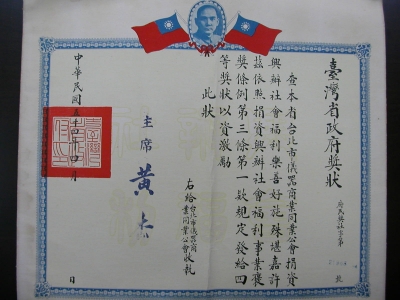 臺灣省政府獎狀
府民興社字第 號
查本省台北市儀器商業同業公會捐資
興辦社會福利樂善好施殊堪嘉許
茲依照捐資興辦社會福利事業褒
獎條例第三條第一款規定發給四
等獎狀以資激勵
此狀
右給台北市儀器商業同業公會收執
主席 黃杰
中華民國五十 年 四月 日